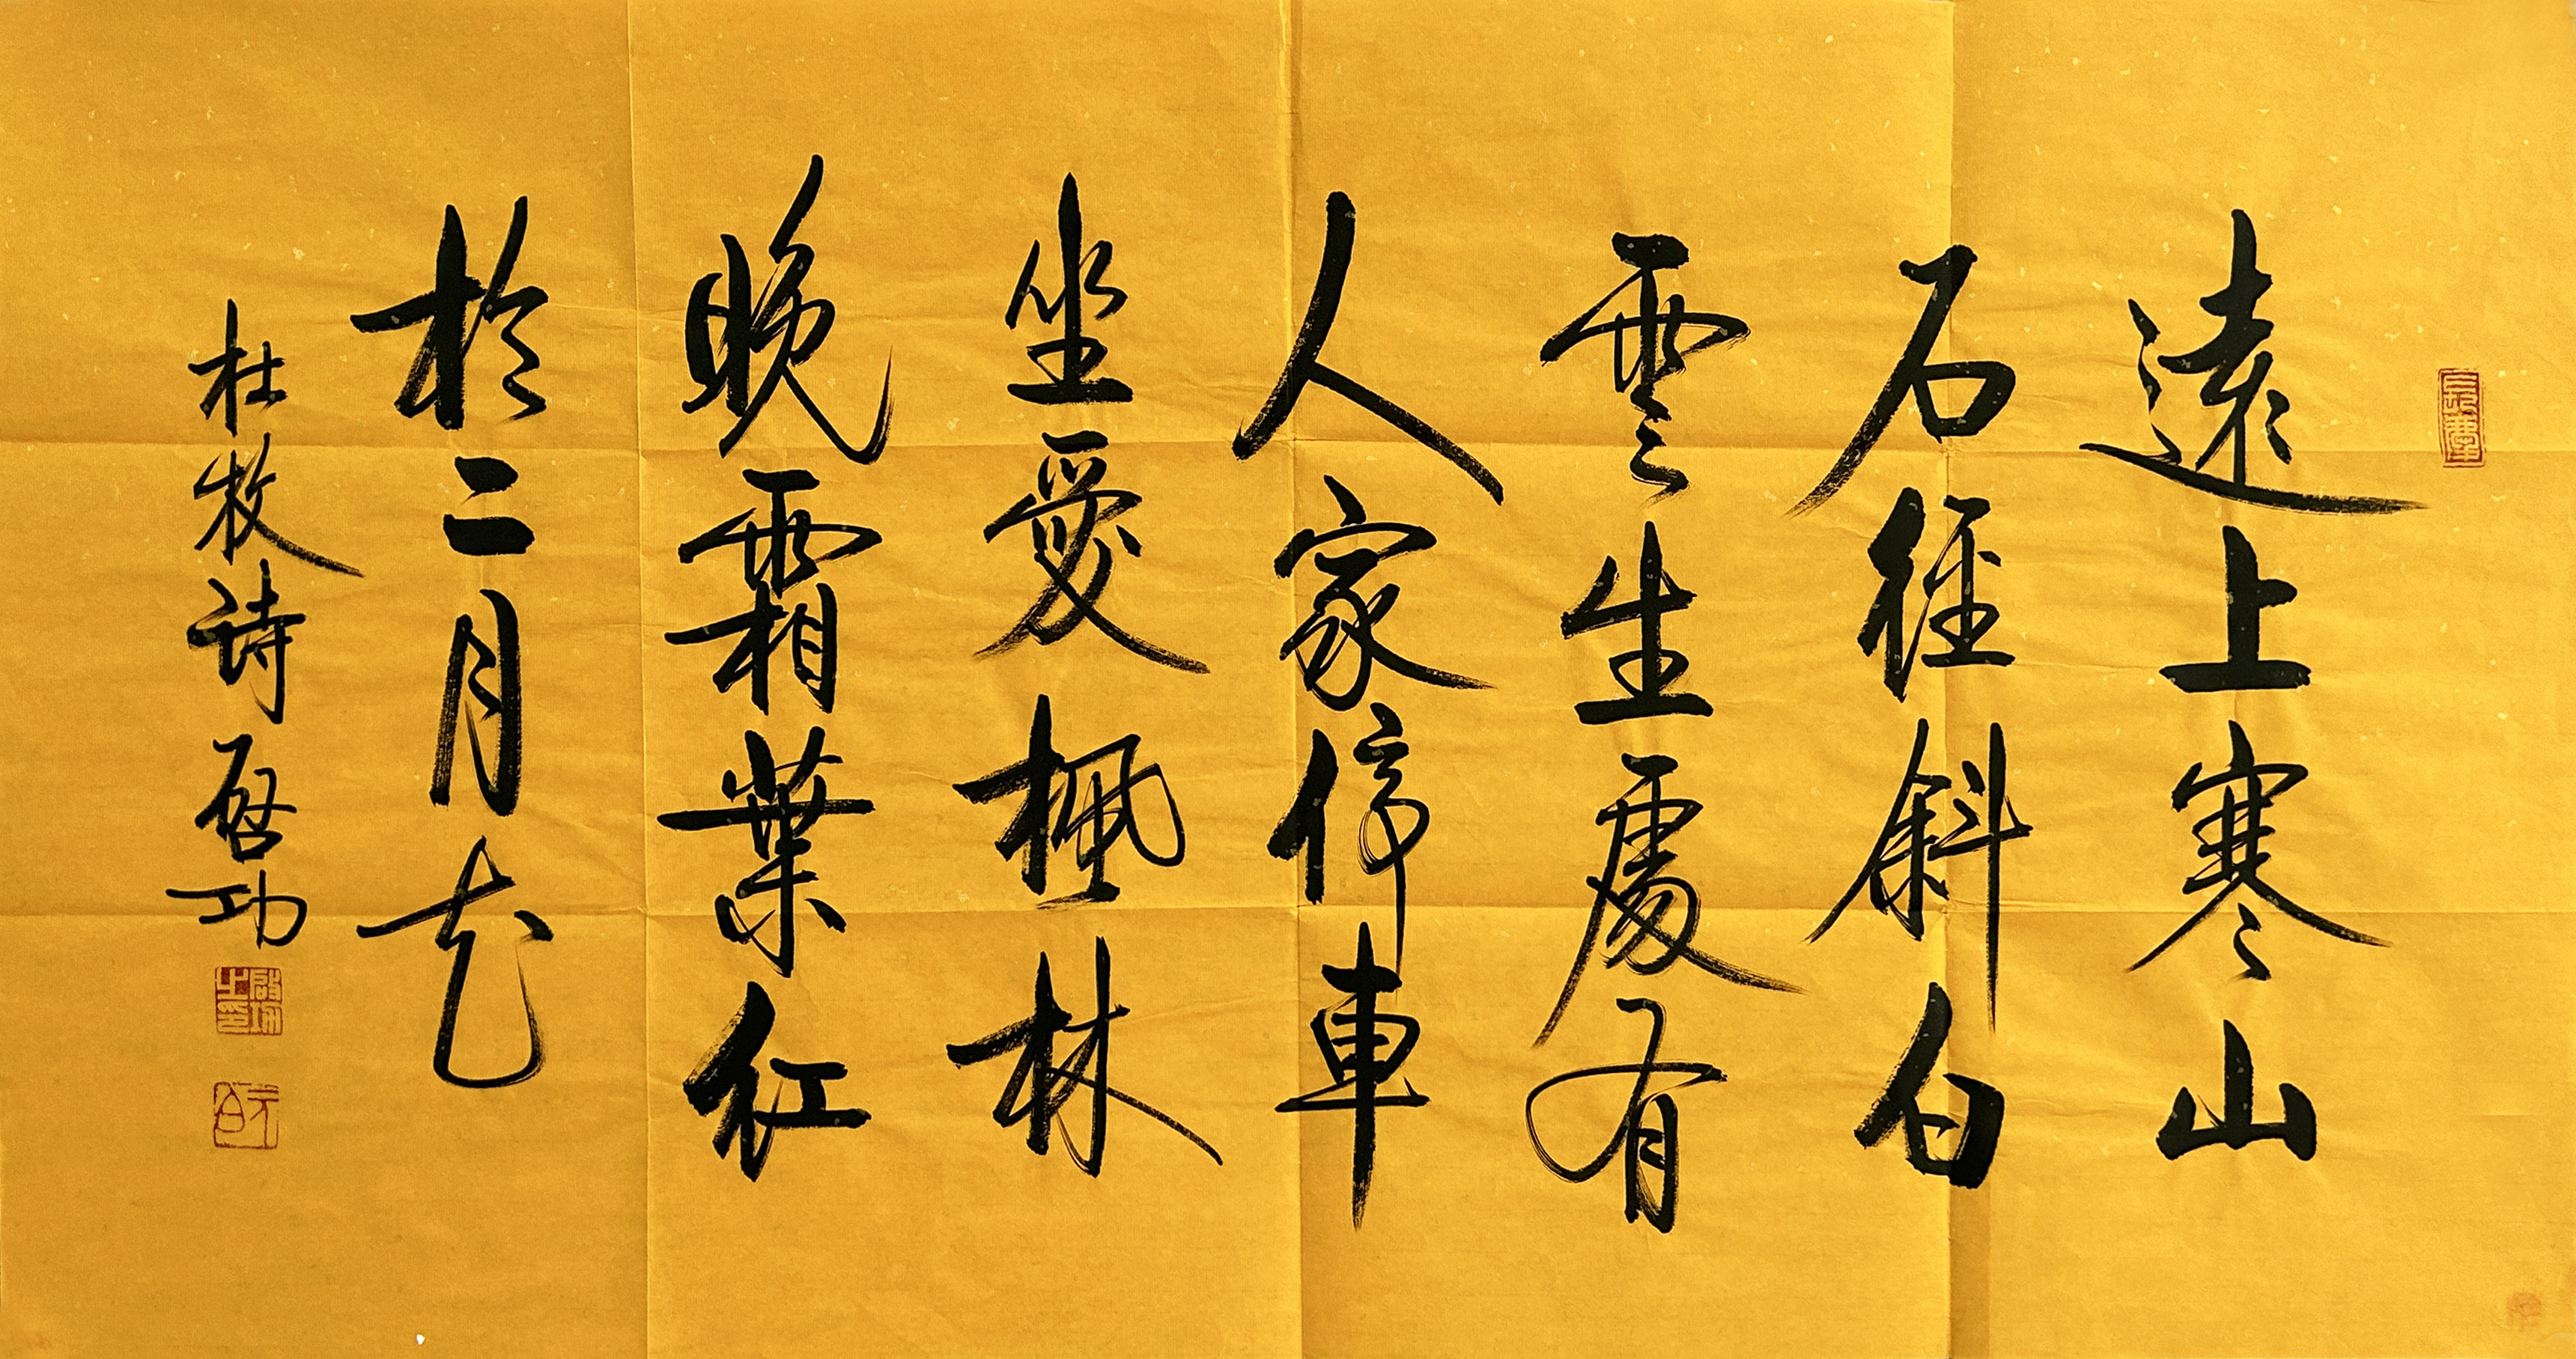 遠上寒山
石徑斜白
雲生處有
人家停車
坐愛楓林
晚霜葉紅
於二月花
杜牧詩 啓功
啟功之印
元白